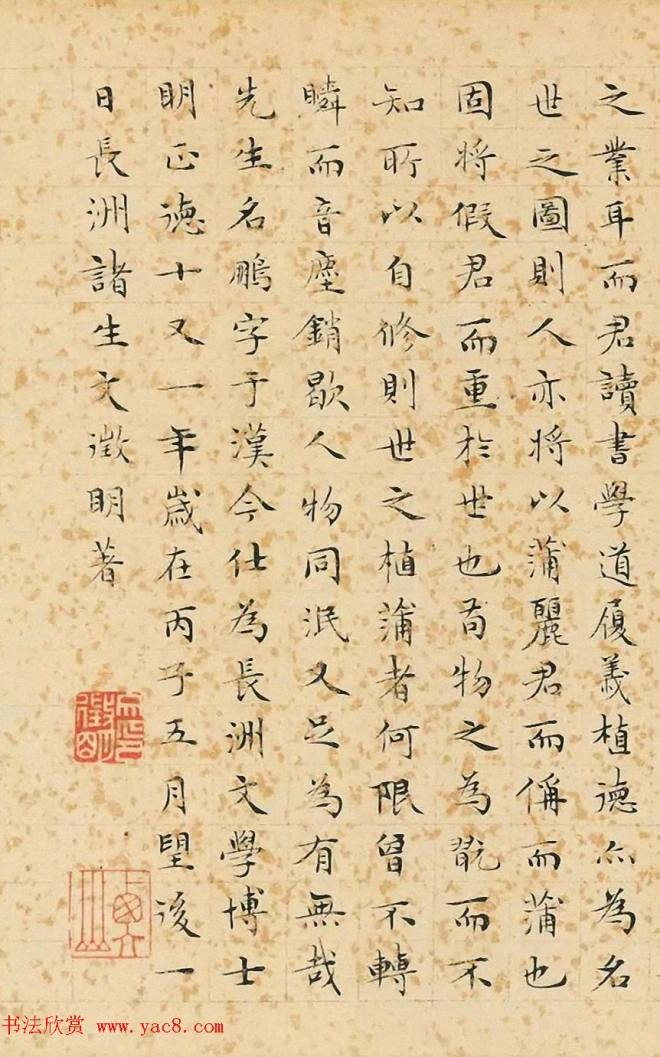 之業耳而君讀書學道履義植德以為名
世之圖則人亦將以蒲麗君而偁而蒲也
固將假君而重於世也苟物之為翫而不
知所以自修則世之植蒲者何限曾不轉
瞬而音塵銷歇人物同泯又足為有無哉
先生名鵬字于漢今仕為長洲文學博士
明正德十又一年歲在丙子五月望後一
日長洲諸生文徵明著
文徵明印
书法欣赏 www.yac8.com